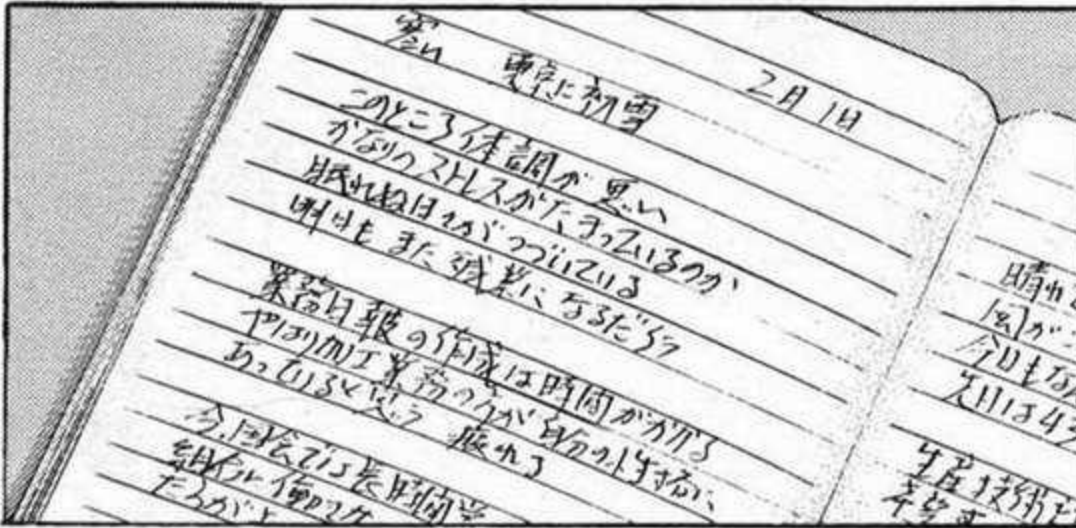 2月1日
寒い 東京に初雪
このところ体調が悪い
かなりのストレスがたまっているのか
眠れぬ日々がつづいている
明日もまた残業になるだろう
業務日報の作成は時間がかかる
やはり加工業務の方が自分の性格に
あっていると思う 疲れる
今、国会では長時間労
組合に働
たろうが
晴れ
風が
今日もな
先日は4
生産技術